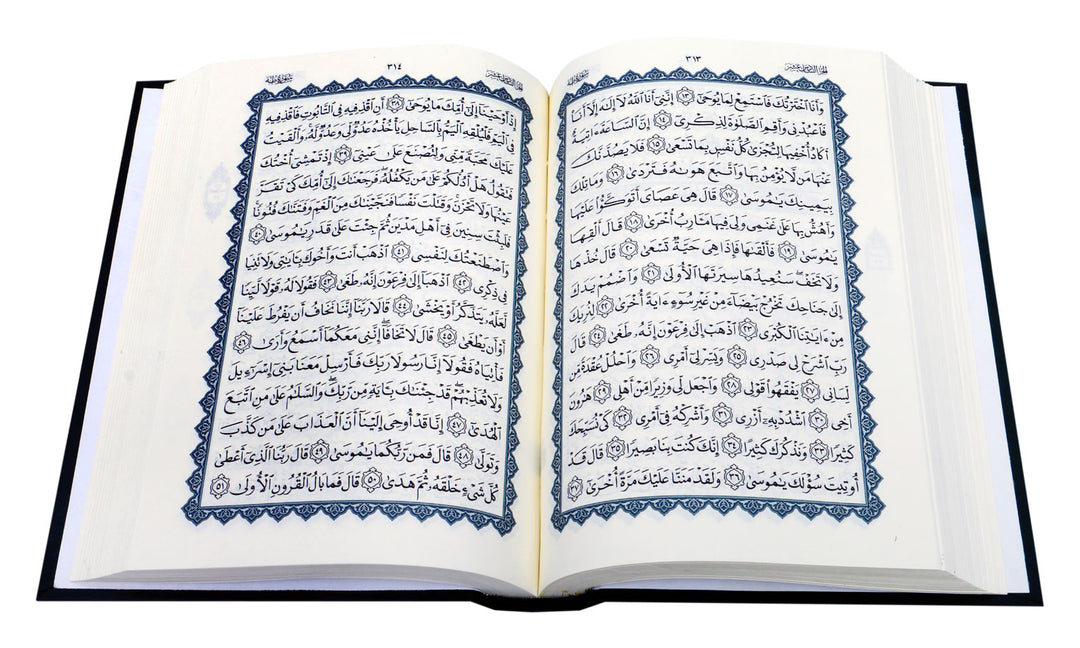 الجزء السادس عشر ٣١٣ سورة طه
وَأَنَا ٱخْتَرْتُكَ فَٱسْتَمِعْ لِمَا يُوحَىٰٓ ﴿١٣﴾ إِنَّنِىٓ أَنَا ٱللَّهُ لَآ إِلَٰهَ إِلَّآ أَنَا۠
فَٱعْبُدْنِى وَأَقِمِ ٱلصَّلَوٰةَ لِذِكْرِىٓ ﴿١٤﴾ إِنَّ ٱلسَّاعَةَ ءَاتِيَةٌ
أَكَادُ أُخْفِيهَا لِتُجْزَىٰ كُلُّ نَفْسٍۭ بِمَا تَسْعَىٰ ﴿١٥﴾ فَلَا يَصُدَّنَّكَ
عَنْهَا مَن لَّا يُؤْمِنُ بِهَا وَٱتَّبَعَ هَوَىٰهُ فَتَرْدَىٰ ﴿١٦﴾ وَمَا تِلْكَ
بِيَمِينِكَ يَٰمُوسَىٰ ﴿١٧﴾ قَالَ هِىَ عَصَاىَ أَتَوَكَّؤُا۟ عَلَيْهَا
وَأَهُشُّ بِهَا عَلَىٰ غَنَمِى وَلِىَ فِيهَا مَـَٔارِبُ أُخْرَىٰ ﴿١٨﴾ قَالَ أَلْقِهَا
يَٰمُوسَىٰ ﴿١٩﴾ فَأَلْقَىٰهَا فَإِذَا هِىَ حَيَّةٌ تَسْعَىٰ ﴿٢٠﴾ قَالَ خُذْهَا
وَلَا تَخَفْ ۖ سَنُعِيدُهَا سِيرَتَهَا ٱلْأُولَىٰ ﴿٢١﴾ وَٱضْمُمْ يَدَكَ
إِلَىٰ جَنَاحِكَ تَخْرُجْ بَيْضَآءَ مِنْ غَيْرِ سُوٓءٍ ءَايَةً أُخْرَىٰ ﴿٢٢﴾ لِنُرِيَكَ
مِنْ ءَايَٰتِنَا ٱلْكُبْرَى ﴿٢٣﴾ ٱذْهَبْ إِلَىٰ فِرْعَوْنَ إِنَّهُۥ طَغَىٰ ﴿٢٤﴾ قَالَ
رَبِّ ٱشْرَحْ لِى صَدْرِى ﴿٢٥﴾ وَيَسِّرْ لِىٓ أَمْرِى ﴿٢٦﴾ وَٱحْلُلْ عُقْدَةً مِّن
لِّسَانِى ﴿٢٧﴾ يَفْقَهُوا۟ قَوْلِى ﴿٢٨﴾ وَٱجْعَل لِّى وَزِيرًا مِّنْ أَهْلِى ﴿٢٩﴾ هَٰرُونَ
أَخِى ﴿٣٠﴾ ٱشْدُدْ بِهِۦٓ أَزْرِى ﴿٣١﴾ وَأَشْرِكْهُ فِىٓ أَمْرِى ﴿٣٢﴾ كَىْ نُسَبِّحَكَ
كَثِيرًا ﴿٣٣﴾ وَنَذْكُرَكَ كَثِيرًا ﴿٣٤﴾ إِنَّكَ كُنتَ بِنَا بَصِيرًا ﴿٣٥﴾ قَالَ قَدْ
أُوتِيتَ سُؤْلَكَ يَٰمُوسَىٰ ﴿٣٦﴾ وَلَقَدْ مَنَنَّا عَلَيْكَ مَرَّةً أُخْرَىٰٓ ﴿٣٧﴾
الجزء السادس عشر ٣١٤ سورة طه
إِذْ أَوْحَيْنَآ إِلَىٰٓ أُمِّكَ مَا يُوحَىٰٓ ﴿٣٨﴾ أَنِ ٱقْذِفِيهِ فِى ٱلتَّابُوتِ فَٱقْذِفِيهِ
فِى ٱلْيَمِّ فَلْيُلْقِهِ ٱلْيَمُّ بِٱلسَّاحِلِ يَأْخُذْهُ عَدُوٌّ لِّى وَعَدُوٌّ لَّهُۥ ۚ وَأَلْقَيْتُ
عَلَيْكَ مَحَبَّةً مِّنِّى وَلِتُصْنَعَ عَلَىٰ عَيْنِىٓ ﴿٣٩﴾ إِذْ تَمْشِىٓ أُخْتُكَ
فَتَقُولُ هَلْ أَدُلُّكُمْ عَلَىٰ مَن يَكْفُلُهُۥ ۖ فَرَجَعْنَٰكَ إِلَىٰٓ أُمِّكَ كَىْ تَقَرَّ
عَيْنُهَا وَلَا تَحْزَنَ ۚ وَقَتَلْتَ نَفْسًا فَنَجَّيْنَٰكَ مِنَ ٱلْغَمِّ وَفَتَنَّٰكَ فُتُونًا ۚ
فَلَبِثْتَ سِنِينَ فِىٓ أَهْلِ مَدْيَنَ ثُمَّ جِئْتَ عَلَىٰ قَدَرٍ يَٰمُوسَىٰ ﴿٤٠﴾
وَٱصْطَنَعْتُكَ لِنَفْسِى ﴿٤١﴾ ٱذْهَبْ أَنتَ وَأَخُوكَ بِـَٔايَٰتِى وَلَا تَنِيَا
فِى ذِكْرِى ﴿٤٢﴾ ٱذْهَبَآ إِلَىٰ فِرْعَوْنَ إِنَّهُۥ طَغَىٰ ﴿٤٣﴾ فَقُولَا لَهُۥ قَوْلًا لَّيِّنًا
لَّعَلَّهُۥ يَتَذَكَّرُ أَوْ يَخْشَىٰ ﴿٤٤﴾ قَالَا رَبَّنَآ إِنَّنَا نَخَافُ أَن يَفْرُطَ عَلَيْنَآ
أَوْ أَن يَطْغَىٰ ﴿٤٥﴾ قَالَ لَا تَخَافَآ ۖ إِنَّنِى مَعَكُمَآ أَسْمَعُ وَأَرَىٰ ﴿٤٦﴾
فَأْتِيَاهُ فَقُولَآ إِنَّا رَسُولَا رَبِّكَ فَأَرْسِلْ مَعَنَا بَنِىٓ إِسْرَٰٓءِيلَ
وَلَا تُعَذِّبْهُمْ ۖ قَدْ جِئْنَٰكَ بِـَٔايَةٍ مِّن رَّبِّكَ ۖ وَٱلسَّلَٰمُ عَلَىٰ مَنِ ٱتَّبَعَ
ٱلْهُدَىٰٓ ﴿٤٧﴾ إِنَّا قَدْ أُوحِىَ إِلَيْنَآ أَنَّ ٱلْعَذَابَ عَلَىٰ مَن كَذَّبَ
وَتَوَلَّىٰ ﴿٤٨﴾ قَالَ فَمَن رَّبُّكُمَا يَٰمُوسَىٰ ﴿٤٩﴾ قَالَ رَبُّنَا ٱلَّذِىٓ أَعْطَىٰ
كُلَّ شَىْءٍ خَلْقَهُۥ ثُمَّ هَدَىٰ ﴿٥٠﴾ قَالَ فَمَا بَالُ ٱلْقُرُونِ ٱلْأُولَىٰ ﴿٥١﴾